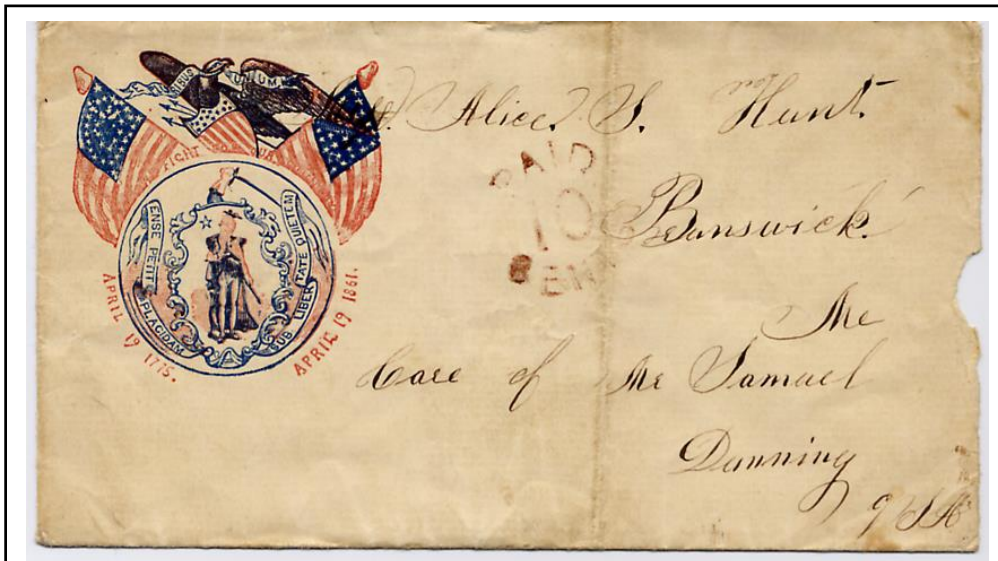 UNUM
FIGHT
ENSE PETIT PLACIDAM SUB LIBERTATE QUIETEM
APRIL 19 1775.
APRIL 19 1861.
PAID
10
CEN
Alice S. Hunt.
Bunswick
Me
Care of Mr Samuel
Dunning